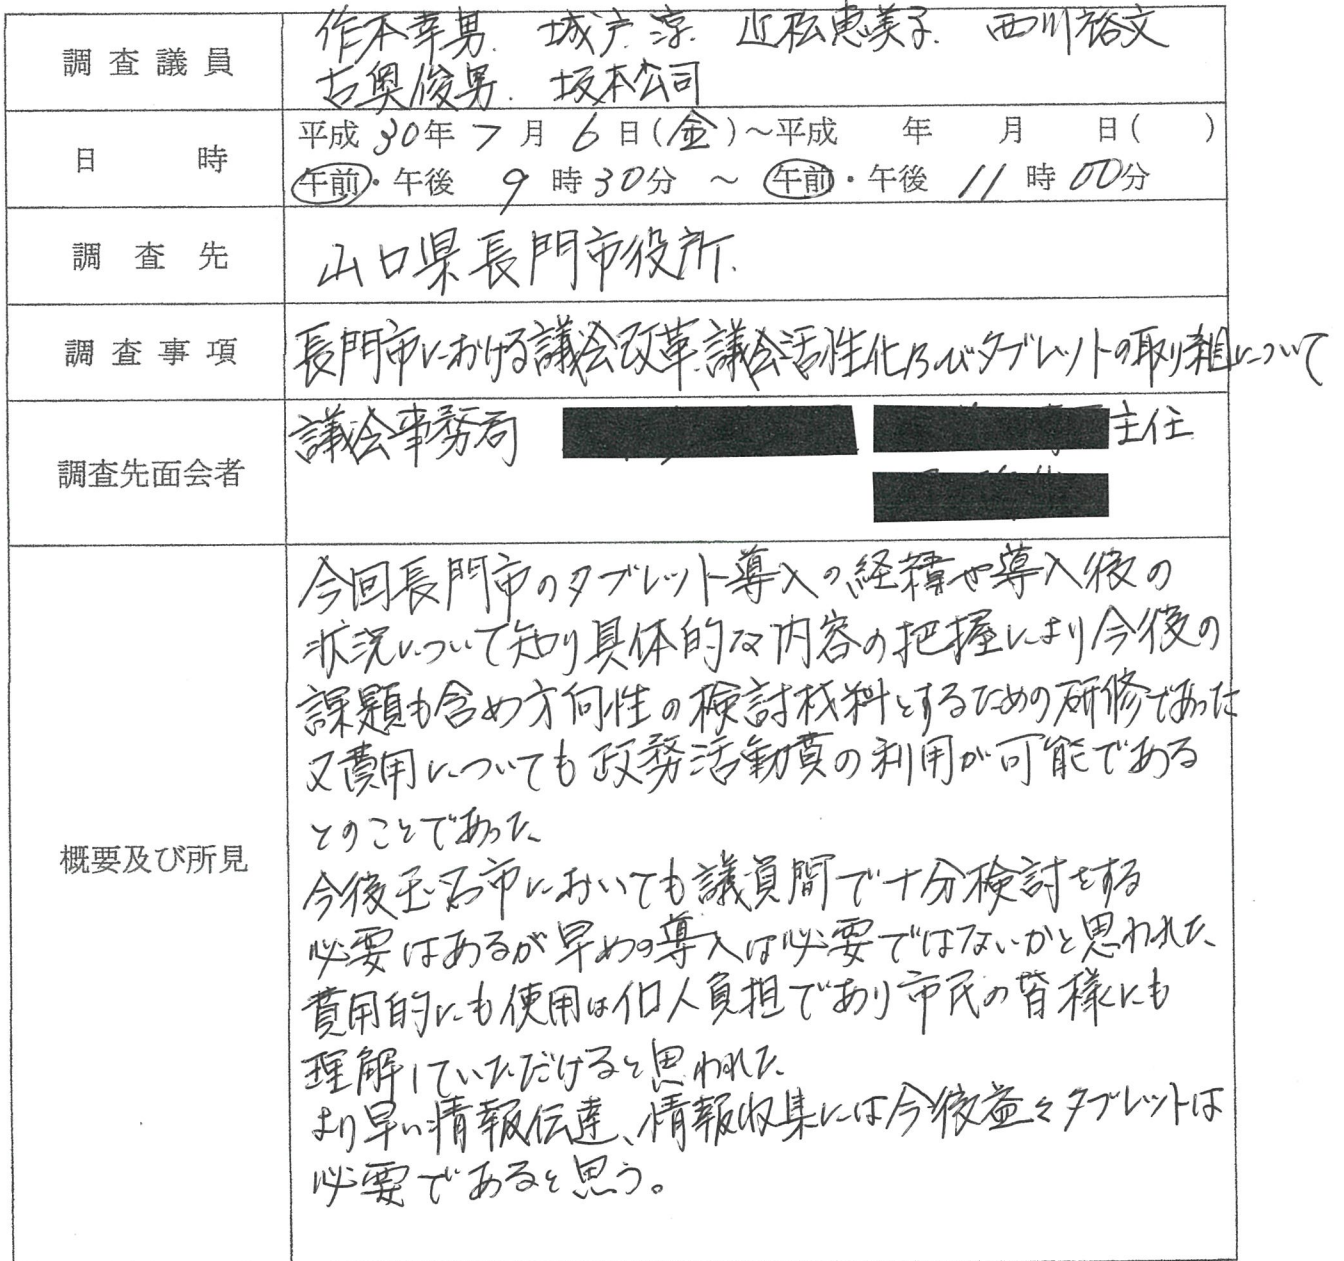 調査議員
作本幸男. 城戸淳. 近松恵美子. 西川裕文
古奥俊男. 坂本公司
日時
平成30年7月6日(金)～平成 年 月 日( )
午前・午後 9時30分 ～ 午前・午後 11時00分
調査先
山口県長門市役所.
調査事項
長門市における議会改革.議会活性化及びタブレットの取り組について
調査先面会者
議会事務局 主任
概要及び所見
今回長門市のタブレット導入の経緯や導入後の
状況について知り具体的な内容の把握により今後の
課題も含め方向性の検討材料とするための研修であった
又費用についても政務活動費の利用が可能である
とのことであった、
今後玉名市においても議員間で十分検討をする
必要はあるが早めの導入は必要ではないかと思われた、
費用的にも使用は個人負担であり市民の皆様にも
理解していただけると思われた、
より早い情報伝達、情報収集には今後益々タブレットは
必要であると思う。